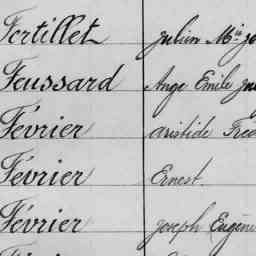 Fertillet Julien Mie
Foussard Ange Emile
Février Aristide
Février Ernest.
Février Joseph Eugène